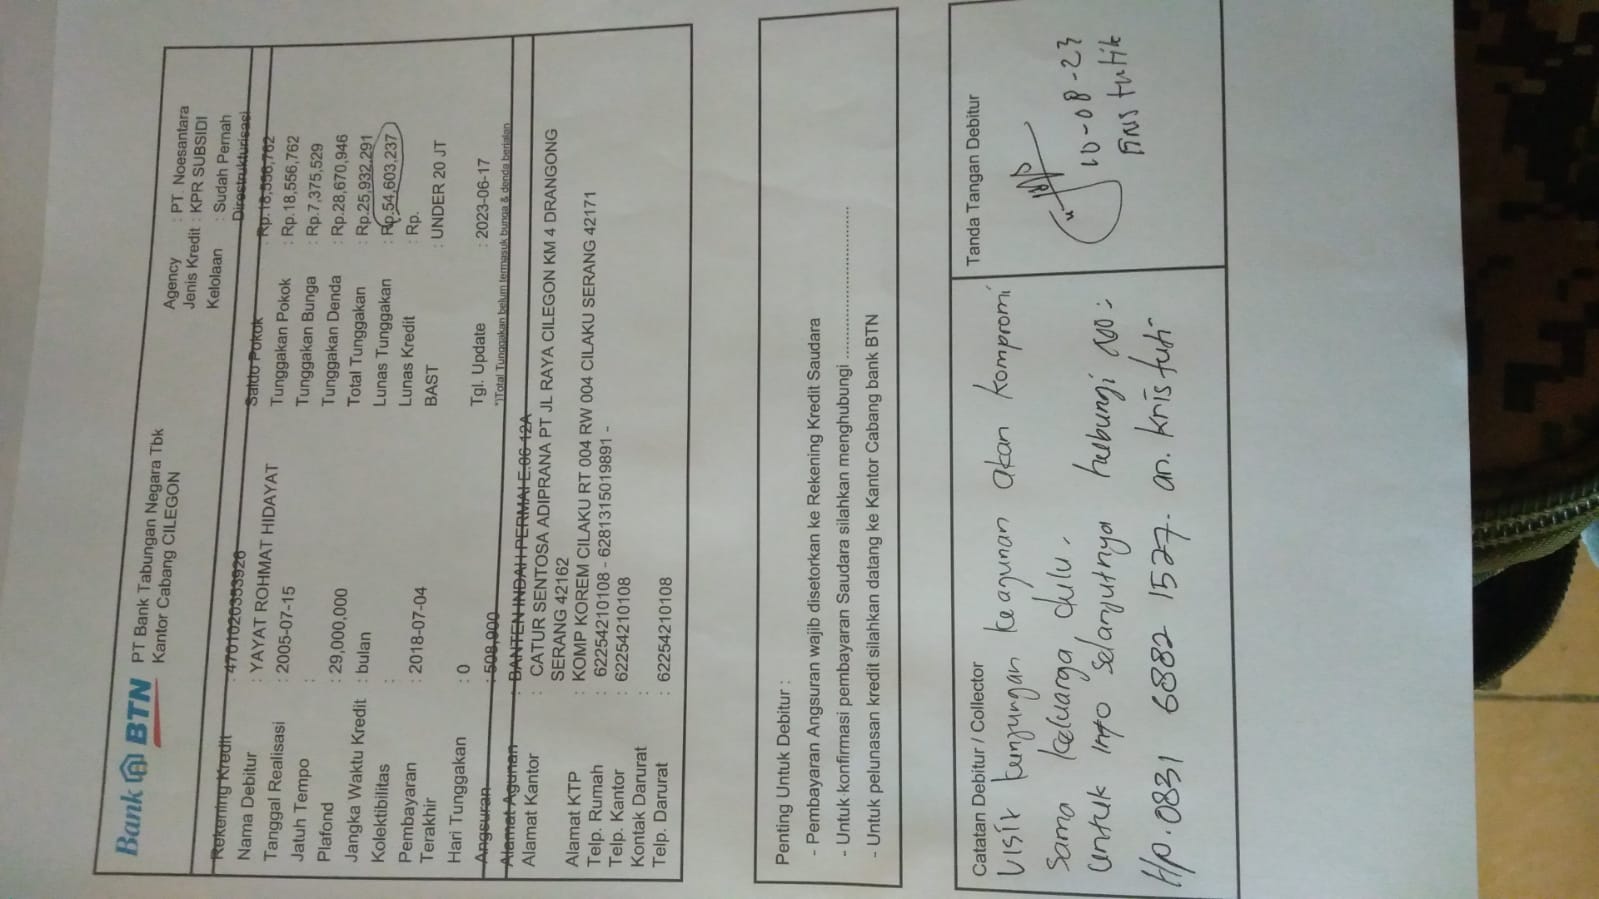 Bank BTN
PT Bank Tabungan Negara Tbk
Kantor Cabang CILEGON
Agency : PT. Noesantara
Jenis Kredit : KPR SUBSIDI
Kelolaan : Sudah Pernah
Direstrukturisasi
Rekening Kredit : 4701020353926
Nama Debitur : YAYAT ROHMAT HIDAYAT
Tanggal Realisasi : 2005-07-15
Jatuh Tempo :
Plafond : 29,000,000
Jangka Waktu Kredit : bulan
Kolektibilitas :
Pembayaran : 2018-07-04
Terakhir
Hari Tunggakan : 0
Angsuran : 508,900
Saldo Pokok : Rp.18,556,762
Tunggakan Pokok : Rp.18,556,762
Tunggakan Bunga : Rp.7,375,529
Tunggakan Denda : Rp.28,670,946
Total Tunggakan : Rp.25,932,291
Lunas Tunggakan : Rp.54,603,237
Lunas Kredit : Rp.
BAST : UNDER 20 JT
Tgl. Update : 2023-06-17
*)Total Tunggakan belum termasuk bunga & denda berjalan
Alamat Agunan : BANTEN INDAH PERMAI E.06 12A
Alamat Kantor : CATUR SENTOSA ADIPRANA PT JL RAYA CILEGON KM 4 DRANGONG
SERANG 42162
Alamat KTP : KOMP KOREM CILAKU RT 004 RW 004 CILAKU SERANG 42171
Telp. Rumah : 62254210108 - 6281315019891 -
Telp. Kantor : 62254210108
Kontak Darurat :
Telp. Darurat : 62254210108
Penting Untuk Debitur :
- Pembayaran Angsuran wajib disetorkan ke Rekening Kredit Saudara
- Untuk konfirmasi pembayaran Saudara silahkan menghubungi ........................................
- Untuk pelunasan kredit silahkan datang ke Kantor Cabang bank BTN
Catatan Debitur / Collector
Visit kunjungan keagunan akan kompromi
sama keluarga dulu.
Untuk info selanjutnya hubungi no:
Hp. 0831 6882 1527. an. kris tuti
Tanda Tangan Debitur
10-08-23